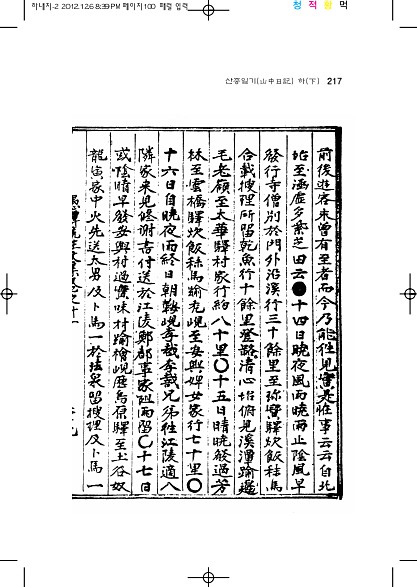 하내지-2 2012.12.6 8:39 PM 페이지100 패평 입력
청 적 황 먹
산중일기(山中日記) 하(下) 217
前後遊客未曾有至者而今乃能往見實是怪事云云自北
坮至涵虛多紫芝田云 十四日曉夜風雨曉雨止陰風早
發行寺僧別於門外沿溪行三十餘里至珎實驛炊飯秣馬
合載搜理所留乾魚行十餘里登 清心坮俯見溪潭踰
毛老嶺至太華驛村家行約八十里〇十五日晴曉發過芳
林至雲橋驛炊飯秣馬踰 峴至安興婢女家行七十里〇
十六日自曉夜雨終日朝 峴李 李 兄弟往江陵適入
隣家來見修謝書付送於江陵鄭郡事家阻雨留〇十七日
或陰晴早發安興村過 味村踰檜峴歷烏原驛至土谷奴
龍 家中火先送太男及卜馬一於法泉留搜理及卜馬一